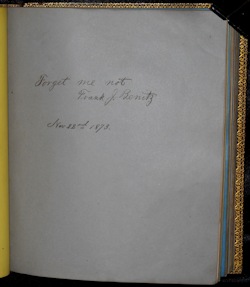 Forget me not
Frank J. Bonitz
Nov 22nd 1873.